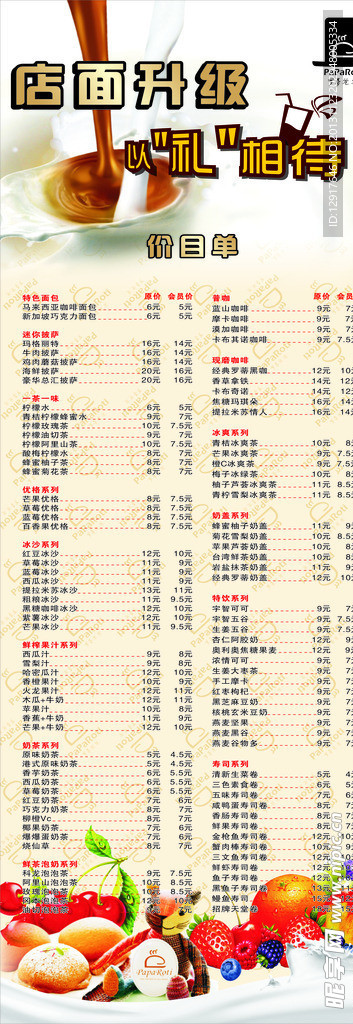 店面升级
以"礼"相待
PaPaRo
价目单
特色面包 原价 会员价
马来西亚咖啡面包 6元 5元
新加坡巧克力面包 6元 5元
迷你披萨
玛格丽特 16元 14元
牛肉披萨 16元 14元
鸡肉磨菇披萨 16元 14元
海鲜披萨 20元 16元
豪华总汇披萨 20元 16元
一茶一味
柠檬水 6元 5元
青桔柠檬蜂蜜水 9元 7元
柠檬玫瑰茶 10元 7.5元
柠檬油切茶 9元 7元
柠檬阿里山茶 10元 7.5元
酸梅柠檬水 8元 7元
蜂蜜柚子茶 8元 7元
蜂蜜菊花茶 8元 7元
优格系列
芒果优格 8元 7.5元
草莓优格 8元 7.5元
蓝莓优格 8元 7.5元
百香果优格 8元 7.5元
冰沙系列
红豆冰沙 12元 10元
草莓冰沙 11元 9元
蓝莓冰沙 11元 9元
西瓜冰沙 11元 9元
提拉米苏冰沙 13元 11元
粗粮冰沙 11元 9.5元
黑糖咖啡冰沙 12元 10元
紫薯冰沙 12元 10元
芒果冰沙 11元 9.5元
鲜榨果汁系列
西瓜汁 9元 8元
雪梨汁 9元 8元
哈密瓜汁 12元 10元
香橙汁 10元 9元
火龙果汁 12元 11元
木瓜+牛奶 12元 11元
苹果汁 10元 8元
香蕉+牛奶 11元 9元
芒果+牛奶 12元 10元
奶茶系列
原味奶茶 5元 4.5元
港式原味奶茶 5元 4.5元
香芋奶茶 6元 5.5元
西瓜奶茶 6元 5.5元
草莓奶茶 6元 5.5元
红豆奶茶 7元 6元
巧克力奶茶 8元 7元
柳橙Vc 8元 7元
椰果奶茶 7元 6元
爆爆蛋奶茶 7元 6元
烧仙草 8元 7元
鲜茶泡奶系列
科龙泡泡茶 9元 7.5元
阿里山泡泡茶 10元 8.5元
玫瑰泡泡茶 10元 8.5元
普咖 原价
蓝山咖啡 9元
摩卡咖啡 9元
漠加咖啡 9元
卡布其诺咖啡 9元
现磨咖啡
经典罗蒂黑咖 12元
香草拿铁 14元
卡布奇诺 14元
焦糖玛琪朵 16元
提拉米苏情人 16元
冰爽系列
青桔冰爽茶 10元
芒果冰爽茶 9元
橙C冰爽茶 9元
梅子冰绿茶 10元
柚子芦荟冰爽茶 11元
青柠雪梨冰爽茶 11元
奶盖系列
蜂蜜柚子奶盖 11元
菊花雪梨奶盖 10元
苹果芦荟奶盖 10元
台湾鲜茶奶盖 10元
岩盐抹茶奶盖 11元
经典罗蒂奶盖 12元
特饮系列
宇智可可 9元
宇智五谷 9元
生姜五谷 9元
杏仁阿胶奶 12元
奥利奥焦糖果麦 12元
浓情可可 9元
生姜大枣茶 9元
手工摩卡 9元
红枣枸杞 9元
黑芝麻豆奶 9元
核桃玄米豆奶 9元
燕麦坚果 9元
燕麦黑谷 9元
燕麦谷物多 9元
寿司系列
清新生菜卷 5元
三色素食卷 6元
五味寿司卷 7元
咸鸭蛋寿司卷 8元
香肠寿司卷 8元
鲜果寿司卷 8元
金枪鱼寿司卷 10元
蟹肉棒寿司卷 10元
三文鱼寿司卷 10元
鲜虾寿司卷 12元
鱼子寿司卷
黑鱼子寿司卷 13元
鳗鱼寿司 15元
招牌天堂卷 18元
PapaRoti
昵享网 www.nipic.cn